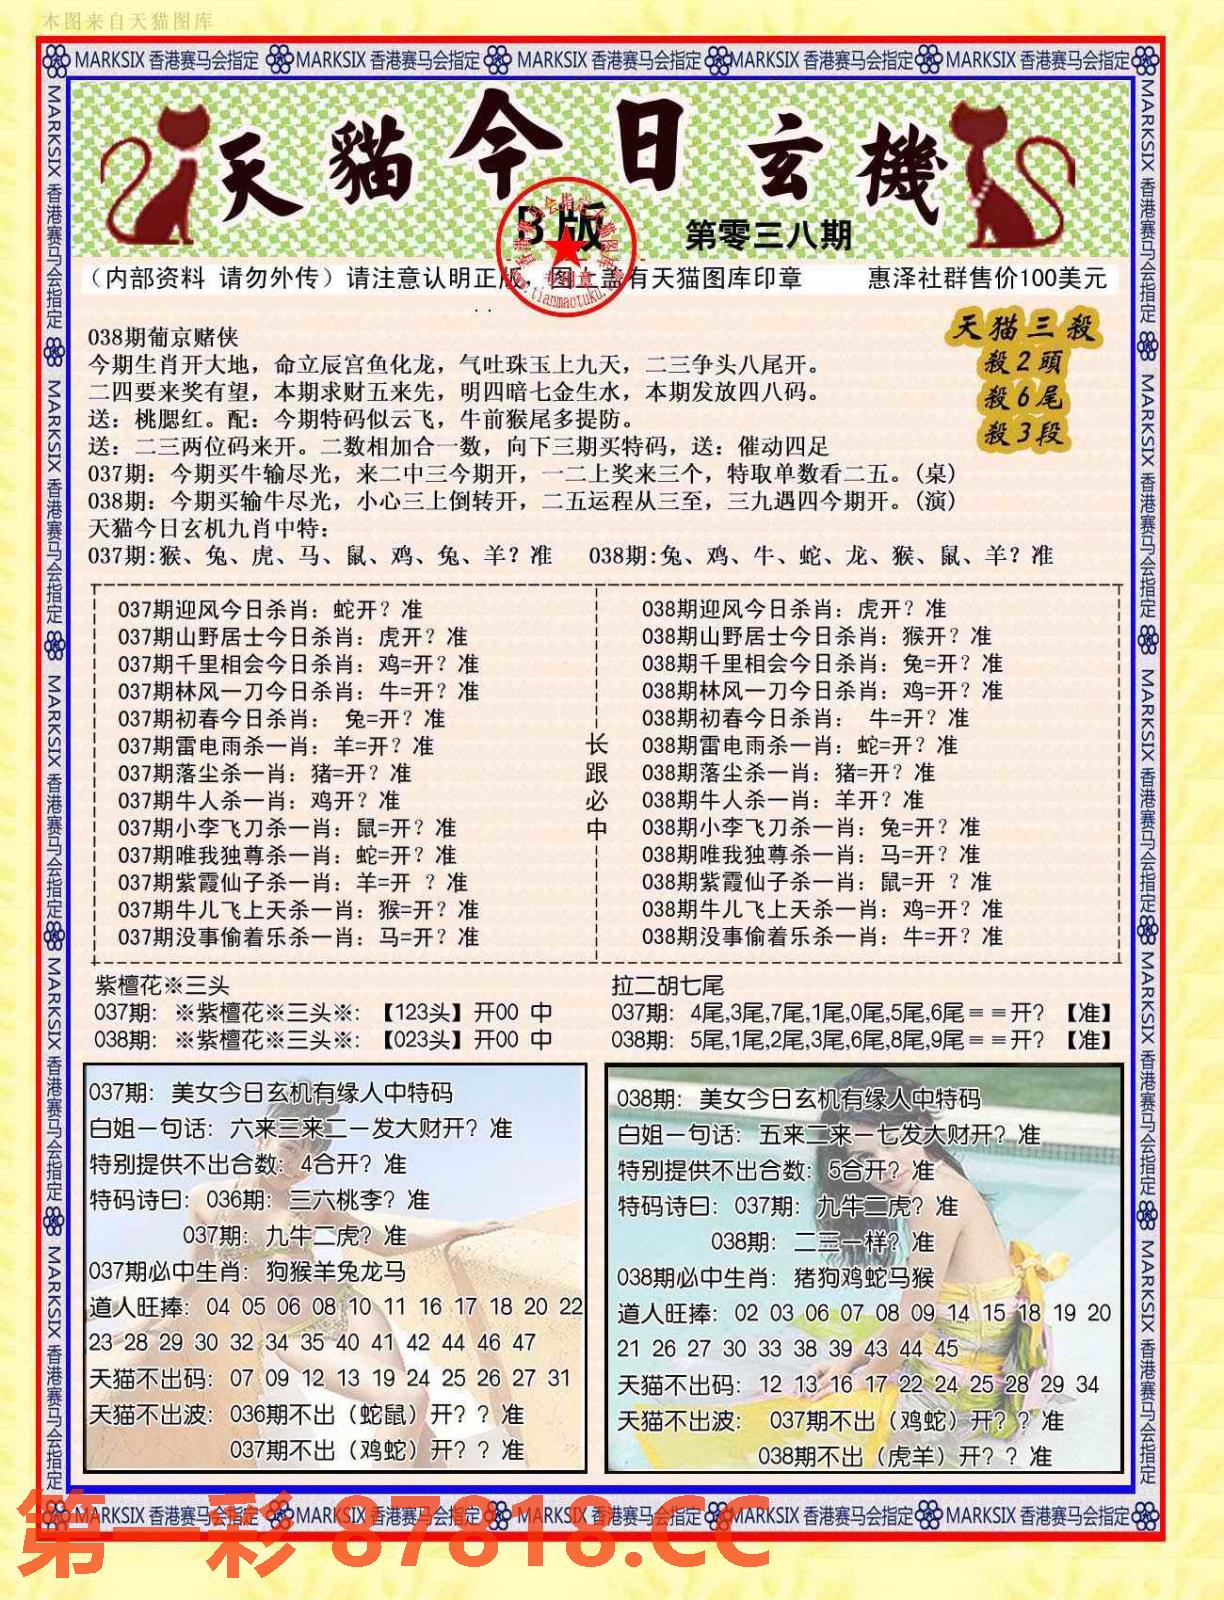 本图来自天猫图库
MARKSIX 香港赛马会指定 MARKSIX 香港赛马会指定 MARKSIX 香港赛马会指定 MARKSIX 香港赛马会指定 MARKSIX 香港赛马会指定
天猫今日玄機
B版
第零三八期
(内部资料 请勿外传)请注意认明正版 图上盖有天猫图库印章 惠泽社群售价100美元
天猫三殺
殺2頭
殺6尾
殺3段
038期葡京赌侠
今期生肖开大地，命立辰宫鱼化龙，气吐珠玉上九天，二三争头八尾开。
二四要来奖有望，本期求财五来先，明四暗七金生水，本期发放四八码。
送：桃腮红。配：今期特码似云飞，牛前猴尾多提防。
送：二三两位码来开。二数相加合一数，向下三期买特码，送：催动四足
037期：今期买牛输尽光，来二中三今期开，一二上奖来三个，特取单数看二五。(桌)
038期：今期买输牛尽光，小心三上倒转开，二五运程从三至，三九遇四今期开。(演)
天猫今日玄机九肖中特：
037期:猴、兔、虎、马、鼠、鸡、兔、羊？准 038期:兔、鸡、牛、蛇、龙、猴、鼠、羊？准
037期迎风今日杀肖：蛇开？准
037期山野居士今日杀肖：虎开？准
037期千里相会今日杀肖：鸡=开？准
037期林风一刀今日杀肖：牛=开？准
037期初春今日杀肖： 兔=开？准
037期雷电雨杀一肖：羊=开？准
037期落尘杀一肖：猪=开？准
037期牛人杀一肖：鸡开？准
037期小李飞刀杀一肖：鼠=开？准
037期唯我独尊杀一肖：蛇=开？准
037期紫霞仙子杀一肖：羊=开 ？准
037期牛儿飞上天杀一肖：猴=开？准
037期没事偷着乐杀一肖：马=开？准
长跟必中
038期迎风今日杀肖：虎开？准
038期山野居士今日杀肖：猴开？准
038期千里相会今日杀肖：兔=开？准
038期林风一刀今日杀肖：鸡=开？准
038期初春今日杀肖： 牛=开？准
038期雷电雨杀一肖：蛇=开？准
038期落尘杀一肖：猪=开？准
038期牛人杀一肖：羊开？准
038期小李飞刀杀一肖：兔=开？准
038期唯我独尊杀一肖：马=开？准
038期紫霞仙子杀一肖：鼠=开 ？准
038期牛儿飞上天杀一肖：鸡=开？准
038期没事偷着乐杀一肖：牛=开？准
紫檀花※三头
037期：※紫檀花※三头※：【123头】开00 中
038期：※紫檀花※三头※：【023头】开00 中
拉二胡七尾
037期：4尾,3尾,7尾,1尾,0尾,5尾,6尾＝＝开？【准】
038期：5尾,1尾,2尾,3尾,6尾,8尾,9尾＝＝开？【准】
037期：美女今日玄机有缘人中特码
白姐一句话：六来三来二一发大财开？准
特别提供不出合数：4合开？准
特码诗曰：036期：三六桃李？准
037期：九牛二虎？准
037期必中生肖：狗猴羊兔龙马
道人旺捧：04 05 06 08 10 11 16 17 18 20 22
23 28 29 30 32 34 35 40 41 42 44 46 47
天猫不出码：07 09 12 13 19 24 25 26 27 31
天猫不出波：036期不出（蛇鼠）开？？准
037期不出（鸡蛇）开？？准
038期：美女今日玄机有缘人中特码
白姐一句话：五来二来一七发大财开？准
特别提供不出合数：5合开？准
特码诗曰：037期：九牛二虎？准
038期：二三一样？准
038期必中生肖：猪狗鸡蛇马猴
道人旺捧：02 03 06 07 08 09 14 15 18 19 20
21 26 27 30 33 38 39 43 44 45
天猫不出码：12 13 16 17 22 24 25 28 29 34
天猫不出波： 037期不出（鸡蛇）开？？准
038期不出（虎羊）开？？准
MARKSIX 香港赛马会指定 MARKSIX 香港赛马会指定 MARKSIX 香港赛马会指定 MARKSIX 香港赛马会指定 MARKSIX 香港赛马会指定
第一彩 87818.CC
MARKSIX 香港赛马会指定 MARKSIX 香港赛马会指定 MARKSIX 香港赛马会指定 MARKSIX 香港赛马会指定 MARKSIX 香港赛马会指定
MARKSIX 香港赛马会指定 MARKSIX 香港赛马会指定 MARKSIX 香港赛马会指定 MARKSIX 香港赛马会指定 MARKSIX 香港赛马会指定